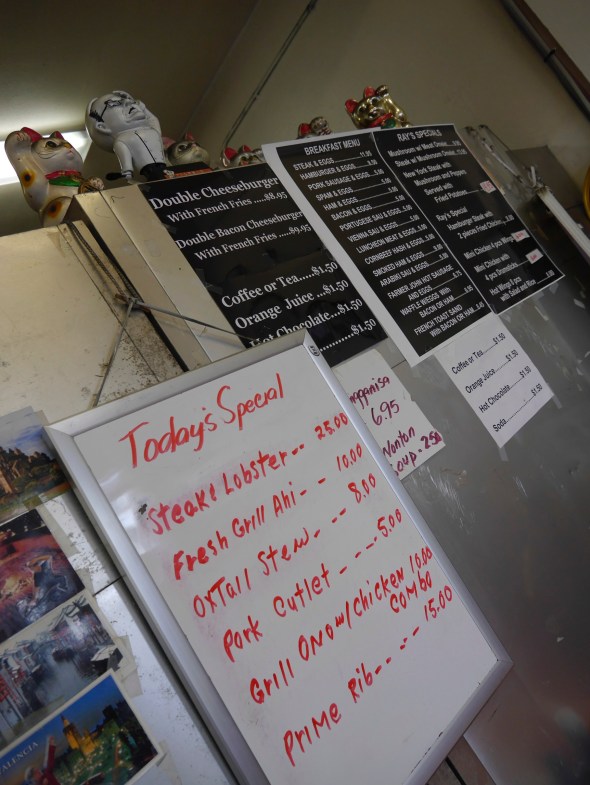 Double Cheeseburger
With French Fries .....$8.95
Double Bacon Cheeseburger
With French Fries .....$9.95
Coffee or Tea.....$1.50
Orange Juice ...$1.50
Hot Chocolate...$1.50
$1.50
BREAKFAST MENU
STEAK & EGGS
HAMBURGER & EGGS
PORK SAUSAGE & EGGS
SPAM & EGGS
HAM & EGGS
BACON & EGGS
PORTUGESE SAU & EGGS
VIENNA SAU & EGGS
LUNCHEON MEAT & EGGS
CORNBEEF HASH & EGGS
SMOKED HAM & EGGS
ARABIKI SAU & EGGS
FARMER JOHN HOT SAUSAGE
AND EGGS
WAFFLE W/EGGS With
BACON OR HAM
FRENCH TOAST
With BACON OR HAM
RAY'S SPECIALS
Mushroom w/ Meat
Steak w/ Mushroom
New York Steak with
Mushroom and Peppers
Served with
Fried Potatoes
Ray's Special
Hamburger Steak with
2 pieces Fried Chicken
Mini Chicken
Mini Chicken with
with Salad and Rice
Coffee or Tea.....$1.50
Orange Juice.....$1.50
Hot Chocolate.....$1.50
Soda.....$1.50
6.95
Wonton
Soup - 2.50
Today's Special
Steak & Lobster -- 25.00
Fresh Grill Ahi - - 10.00
OxTail Stew - - - 8.00
Pork Cutlet - - - - 5.00
Grill Ono w/chicken 10.00
COMBO
Prime Rib - - - - - 15.00
VALENCIA